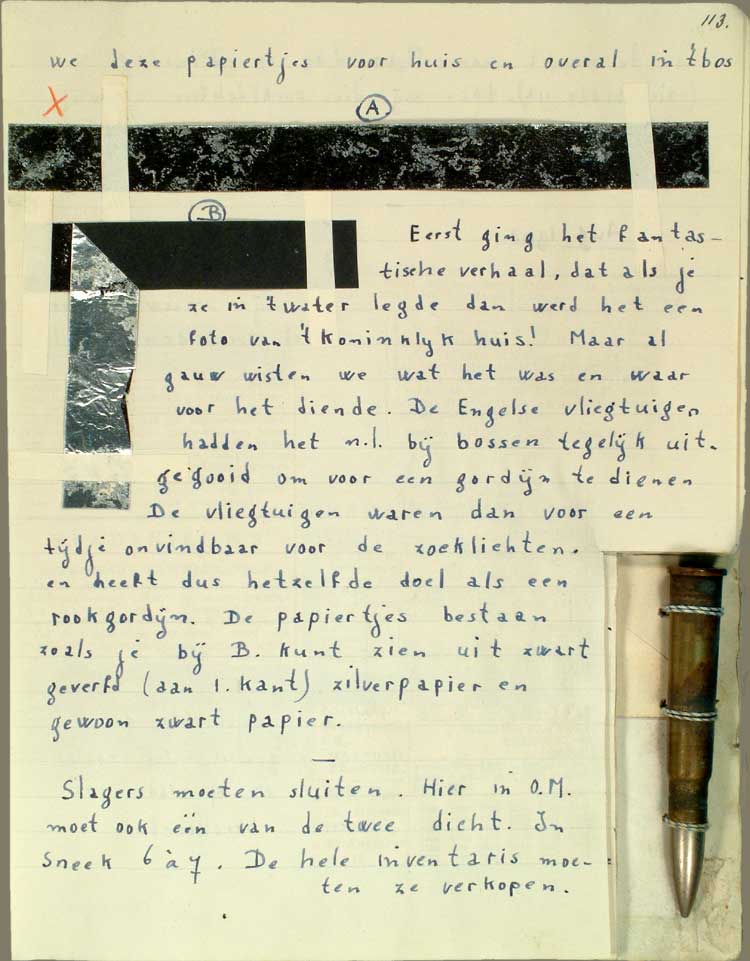 113.
we deze papiertjes voor huis en overal in 't bos
X
A
B
Eerst ging het fantas-
tische verhaal, dat als je
ze in 't water legde dan werd het een
foto van 't Koninklyk huis! Maar al
gauw wisten we wat het was en waar
voor het diende. De Engelse vliegtuigen
hadden het n.l. bij bossen tegelijk uit-
gegooid om voor een gordijn te dienen
De vliegtuigen waren dan voor een
tijdje onvindbaar voor de zoeklichten.
en heeft dus hetzelfde doel als een
rookgordijn. De papiertjes bestaan
zoals je bij B. kunt zien uit zwart
geverfd (aan 1. kant) zilverpapier en
gewoon zwart papier.
—
Slagers moeten sluiten. Hier in O.M.
moet ook één van de twee dicht. In
Sneek 6 à 7. De hele inventaris moe-
ten ze verkopen.